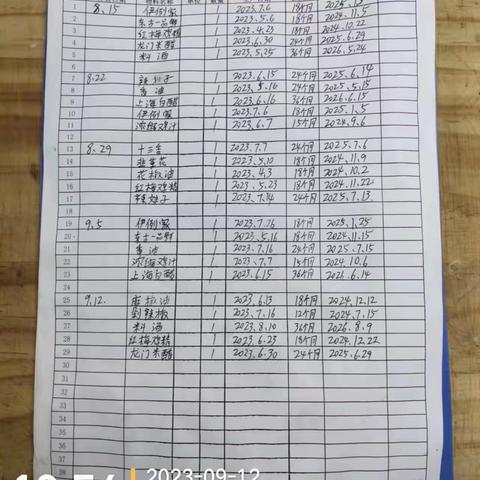 1 8.15 伊例家 1 2023.7.6 18个月 2025.1.5
2 东古一品鲜 1 2023.5.6 18个月 2024.11.5
3 红梅鸡精 1 2023.4.23 18个月 2024.10.22
4 龙门米醋 1 2023.6.30 24个月 2025.6.29
5 料酒 1 2023.5.25 36个月 2026.5.24
6
7 8.22 1 2023.6.15 24个月 2025.6.14
8 香油 1 2023.5.16 24个月 2025.5.15
9 上海白醋 1 2023.6.16 36个月 2026.6.15
10 伊例家 1 2023.7.6 18个月 2025.1.5
11 浓缩鸡汁 1 2023.6.7 15个月 2024.9.6
13 8.29 十三香 1 2023.7.7 24个月 2025.7.6
14 韭菜花 1 2023.5.10 18个月 2024.11.9
15 花椒油 1 2023.4.3 18个月 2024.10.2
16 红梅鸡精 1 2023.5.23 18个月 2024.11.22
17 辣妹子 1 2023.7.14 24个月 2025.7.13
18
19 9.5 伊例家 1 2023.7.26 18个月 2025.1.25
20 东古一品鲜 1 2023.5.16 18个月 2024.11.15
21 香油 1 2023.7.16 24个月 2025.7.15
22 浓缩鸡汁 1 2023.7.7 15个月 2024.10.6
23 上海白醋 1 2023.6.15 36个月 2026.6.14
24
25 9.12. 麻椒油 1 2023.6.13 18个月 2024.12.12
26 剁辣椒 1 2023.7.16 12个月 2024.7.15
27 料酒 1 2023.8.10 36个月 2026.8.9
28 红梅鸡精 1 2023.6.23 18个月 2024.12.22
29 龙门米醋 1 2023.6.30 24个月 2025.6.29
30
31
32
33
34
35
36
37
38
2023-09-12